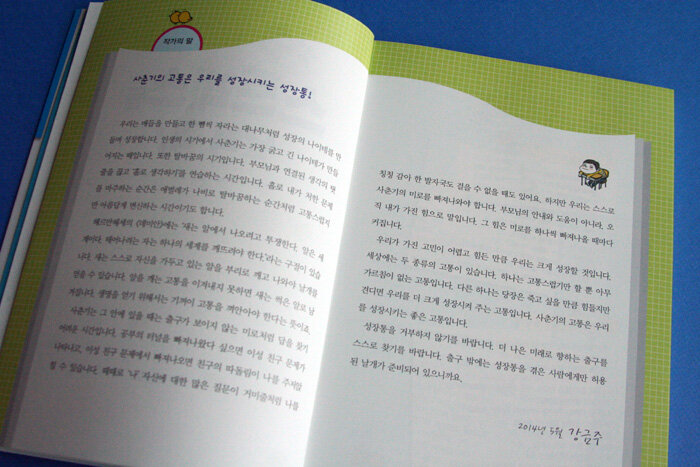 작가의 말
사춘기의 고통은 우리를 성장시키는 성장통!
우리는 매듭을 만들고 한 뼘씩 자라는 대나무처럼 성장의 나이테를 만
들며 성장합니다. 인생의 시기에서 사춘기는 가장 굵고 긴 나이테가 만들
어지는 때입니다. 또한 탈바꿈의 시기입니다. 부모님과 연결된 생각의 탯
줄을 끊고 홀로 생각하기를 연습하는 시간입니다. 홀로 내가 처한 문제
를 마주하는 순간은 애벌레가 나비로 탈바꿈하는 순간처럼 고통스럽지
만 아름답게 변신하는 시간이기도 합니다.
헤르만헤세의 《데미안》에는 '새는 알에서 나오려고 투쟁한다. 알은 세
계이다. 태어나려는 자는 하나의 세계를 깨뜨려야 한다.'라는 구절이 있습
니다. 새는 스스로 자신을 가두고 있는 알을 부리로 깨고 나와야 날개를
얻을 수 있습니다. 알을 깨는 고통을 이겨내지 못하면 새는 썩은 알로 남
겨집니다. 생명을 얻기 위해서는 기꺼이 고통을 껴안아야 한다는 뜻이죠.
사춘기는 그 안에 있을 때는 출구가 보이지 않는 미로처럼 답을 찾기
어려운 시간입니다. 공부의 터널을 빠져나왔다 싶으면 이성 친구 문제가
나타나고, 이성 친구 문제에서 빠져나오면 친구의 따돌림이 나를 주저앉
힐 수 있습니다. 때때로 '나' 자신에 대한 많은 질문이 거미줄처럼 나를
칭칭 감아 한 발자국도 걸을 수 없을 때도 있어요. 하지만 우리는 스스로
사춘기의 미로를 빠져나와야 합니다. 부모님의 안내와 도움이 아니라, 오
직 내가 가진 힘으로 말입니다. 그 힘은 미로를 하나씩 빠져나올 때마다
커집니다.
우리가 가진 고민이 어렵고 힘든 만큼 우리는 크게 성장할 것입니다.
세상에는 두 종류의 고통이 있습니다. 하나는 고통스럽기만 할 뿐 아무
가르침이 없는 고통입니다. 다른 하나는 당장은 죽고 싶을 만큼 힘들지만
견디면 우리를 더 크게 성장시켜 주는 고통입니다. 사춘기의 고통은 우리
를 성장시키는 좋은 고통입니다.
성장통을 거부하지 않기를 바랍니다. 더 나은 미래로 향하는 출구를
스스로 찾기를 바랍니다. 출구 밖에는 성장통을 겪은 사람에게만 허용
된 날개가 준비되어 있으니까요.
2014년 5월 강금주